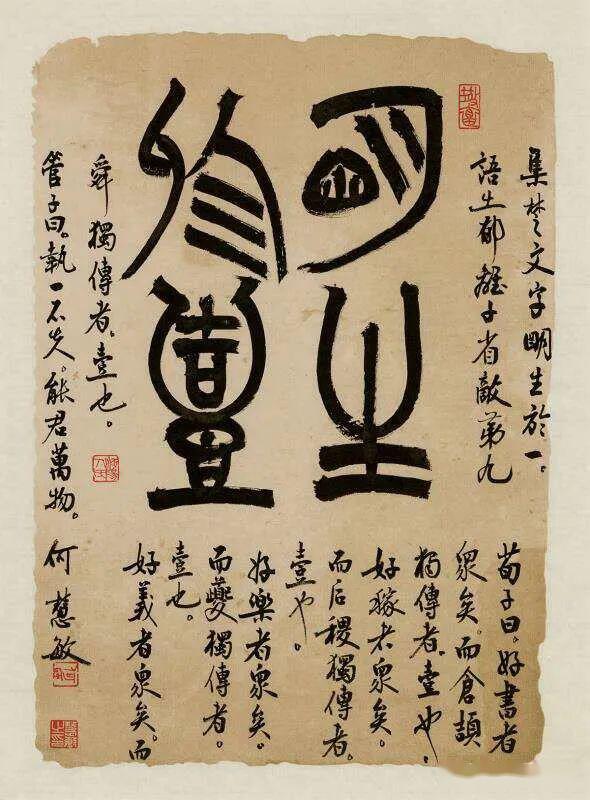 明生
於壹
集楚文字明生於一。
語出郁離子省敵第九
荀子曰。好書者
衆矣。而倉頡
獨傳者。壹也。
好稼者衆矣。
而后稷獨傳者。
壹也。
好樂者衆矣。
而夔獨傳者。
壹也。
好義者衆矣。而
舜獨傳者。壹也。
管子曰。執一不失。能君萬物。何慧敏